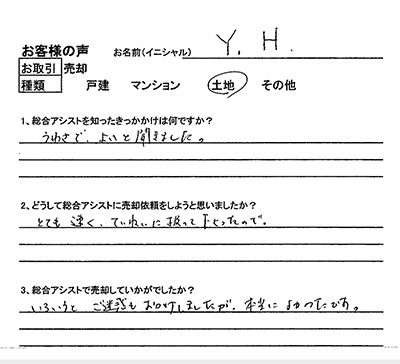 お客様の声 お名前(イニシャル) Y. H.
お取引 売却
種類 戸建 マンション 土地 その他
1、総合アシストを知ったきっかかけは何ですか?
うわさで、よいと聞きました。
2、どうして総合アシストに売却依頼をしようと思いましたか?
とても速く、ていねいに扱って下さったので。
3、総合アシストで売却していかがでしたか?
いろいろと ご迷惑も おかけしましたが、本当に よかったです。